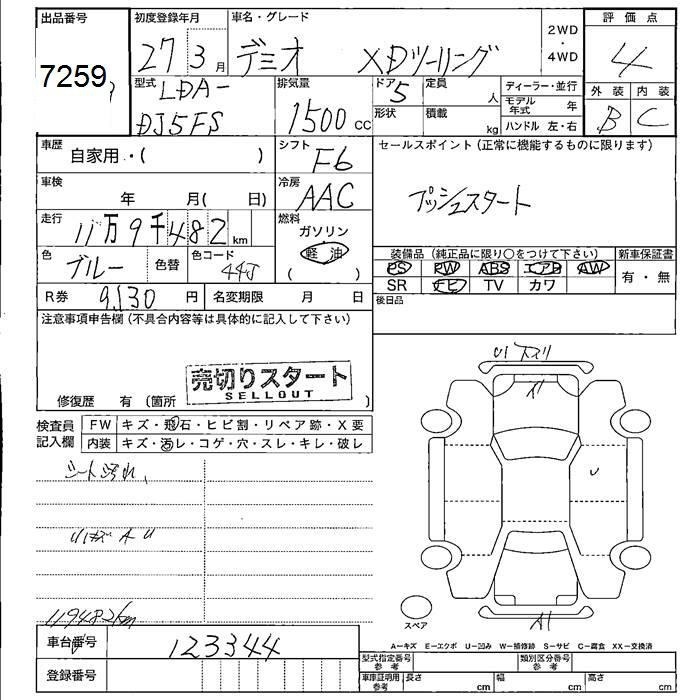 出品番号
7259
初度登録年月
27 3月
車名・グレード
デミオ XDツーリング
2WD
・
4WD
評価点
4
型式
LDA-
DJ5FS
排気量
1500cc
ドア
5
形状
定員
人
積載
kg
ディーラー・並行
モデル年式 年
ハンドル 左・右
外装 内装
B C
車歴
自家用・( )
シフト
F6
セールスポイント(正常に機能するものに限ります)
プッシュスタート
車検
年 月( 日)
冷房
AAC
走行
11万9千482km
燃料
ガソリン
軽油
( )
色
ブルー
色替
色コード
44J
装備品(純正品に限り○をつけて下さい)
PS PW ABS エアB AW
SR ナビ TV カワ
新車保証書
有・無
R券 9,130円
名変期限 月 日
後日品
注意事項申告欄(不具合内容等は具体的に記入して下さい)
売切りスタート
SELLOUT
修復歴 有(箇所 )
検査員
記入欄
FW キズ・飛石・ヒビ割・リペア跡・X要
内装 キズ・汚レ・コゲ・穴・スレ・キレ・破レ
シート汚れ
リバーズ A U
119482km
車台番号
123344
登録番号
A1
U
A1
スペア
A-キズ E-エクボ U-凹み W-補修跡 S-サビ C-腐食 XX-交換済
型式指定番号 参考
類別区分番号 参考
車庫証明用 参考
長さ cm
幅 cm
高さ cm